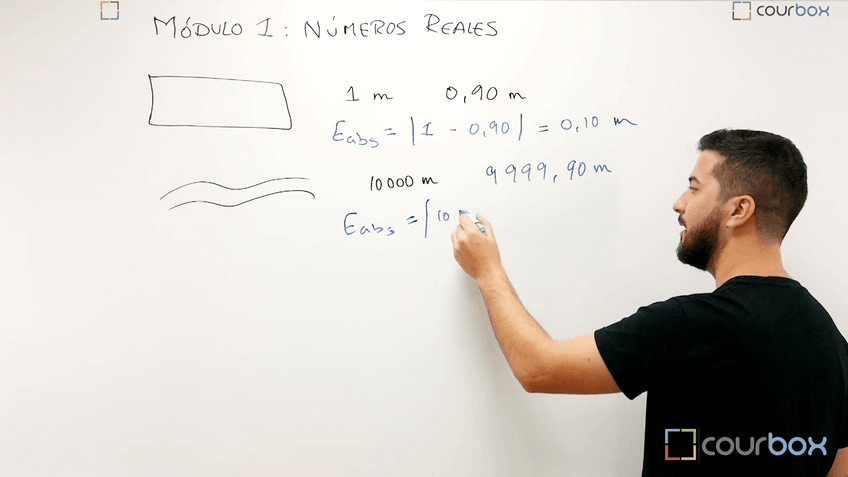 MÓDULO 1: NÚMEROS REALES
courbox
1 m 0,90 m
Eabs = |1 - 0,90| = 0,10 m
10000 m 9999,90 m
Eabs = |10
courbox